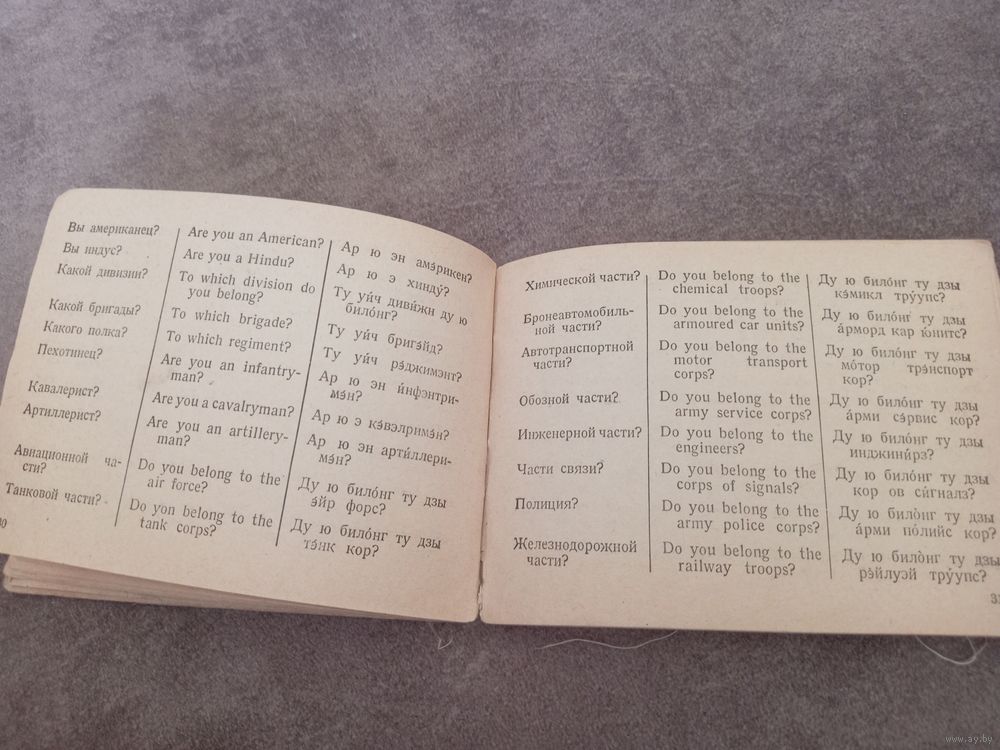 Вы американец?
Are you an American?
Ар ю эн амэ́рикен?
Вы индус?
Are you a Hindu?
Ар ю э хинду́?
Какой дивизии?
To which division do
you belong?
Ту уи́ч диви́жн ду ю
било́нг?
Какой бригады?
To which brigade?
Ту уи́ч бригэ́йд?
Какого полка?
To which regiment?
Ту уи́ч рэ́джимэнт?
Пехотинец?
Are you an infantry-
man?
Ар ю эн и́нфэнтри-
мэ́н?
Кавалерист?
Are you a cavalryman?
Ар ю э кэ́вэлримэ́н?
Артиллерист?
Are you an artillery-
man?
Ар ю эн арти́ллери-
мэ́н?
Авиационной ча-
сти?
Do you belong to the
air force?
Ду ю било́нг ту дзы
э́йр форс?
Танковой части?
Do yon belong to the
tank corps?
Ду ю било́нг ту дзы
тэ́нк кор?
30
Химической части?
Do you belong to the
chemical troops?
Ду ю било́нг ту дзы
кэ́микл тру́упс?
Бронеавтомобиль-
ной части?
Do you belong to the
armoured car units?
Ду ю било́нг ту дзы
а́рморд кар ю́нитс?
Автотранспортной
части?
Do you belong to the
motor transport
corps?
Ду ю било́нг ту дзы
мо́тор трэ́нспорт
кор?
Обозной части?
Do you belong to the
army service corps?
Ду ю било́нг ту дзы
а́рми сэ́рвис кор?
Инженерной части?
Do you belong to the
engineers?
Ду ю било́нг ту дзы
инджини́рз?
Части связи?
Do you belong to the
corps of signals?
Ду ю било́нг ту дзы
кор ов си́гналз?
Полиция?
Do you belong to the
army police corps?
Ду ю било́нг ту дзы
а́рми по́лийс кор?
Железнодорожной
части?
Do you belong to the
railway troops?
Ду ю било́нг ту дзы
рэ́йлуэй тру́упс?
www.ay.by